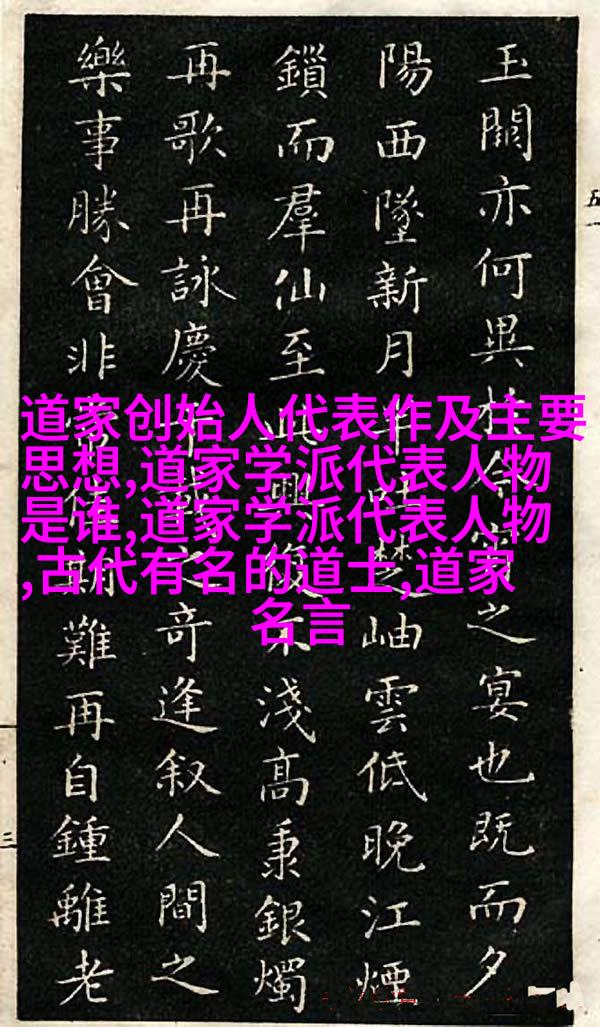 玉闕亦何異於今宵之宴也既而夕
陽西墜新月半吐楚岫雲低晚江煙
鎖而羣仙至此興復不淺高秉銀燭
再歌再詠慶千載之奇逢叙人間之
樂事勝會非常難再自鍾離老
道家创始人代表作及主要
思想,道家学派代表人物
是谁,道家学派代表人物
,古代有名的道士,道家
名言
五一
三